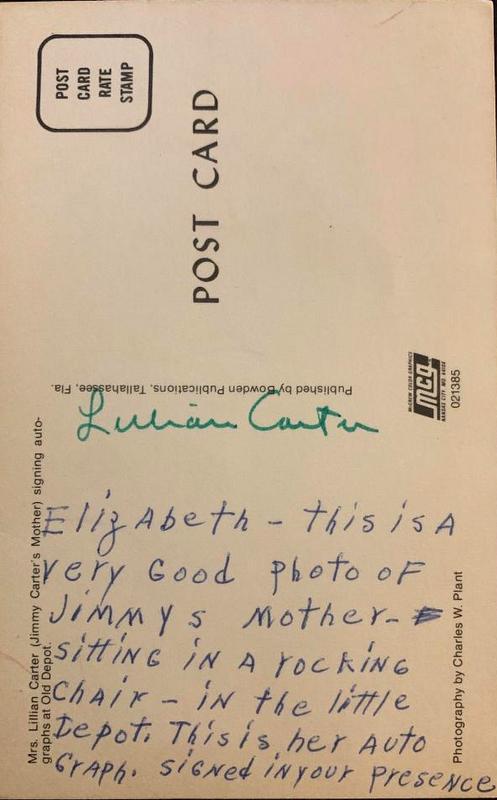 POST
CARD
RATE
STAMP
POST CARD
Published by Bowden Publications, Tallahassee, Fla.
McGREW COLOR GRAPHICS
mcg
KANSAS CITY, MO. 64108
021385
Lillian Carter
Mrs. Lillian Carter (Jimmy Carter's Mother) signing auto-
graphs at Old Depot.
Elizabeth - this is A
very Good photo of
Jimmys Mother-
sitting in A rocking
Chair - in the little
Depot. This is her Auto
Graph. signed in your presence
Photography by Charles W. Plant